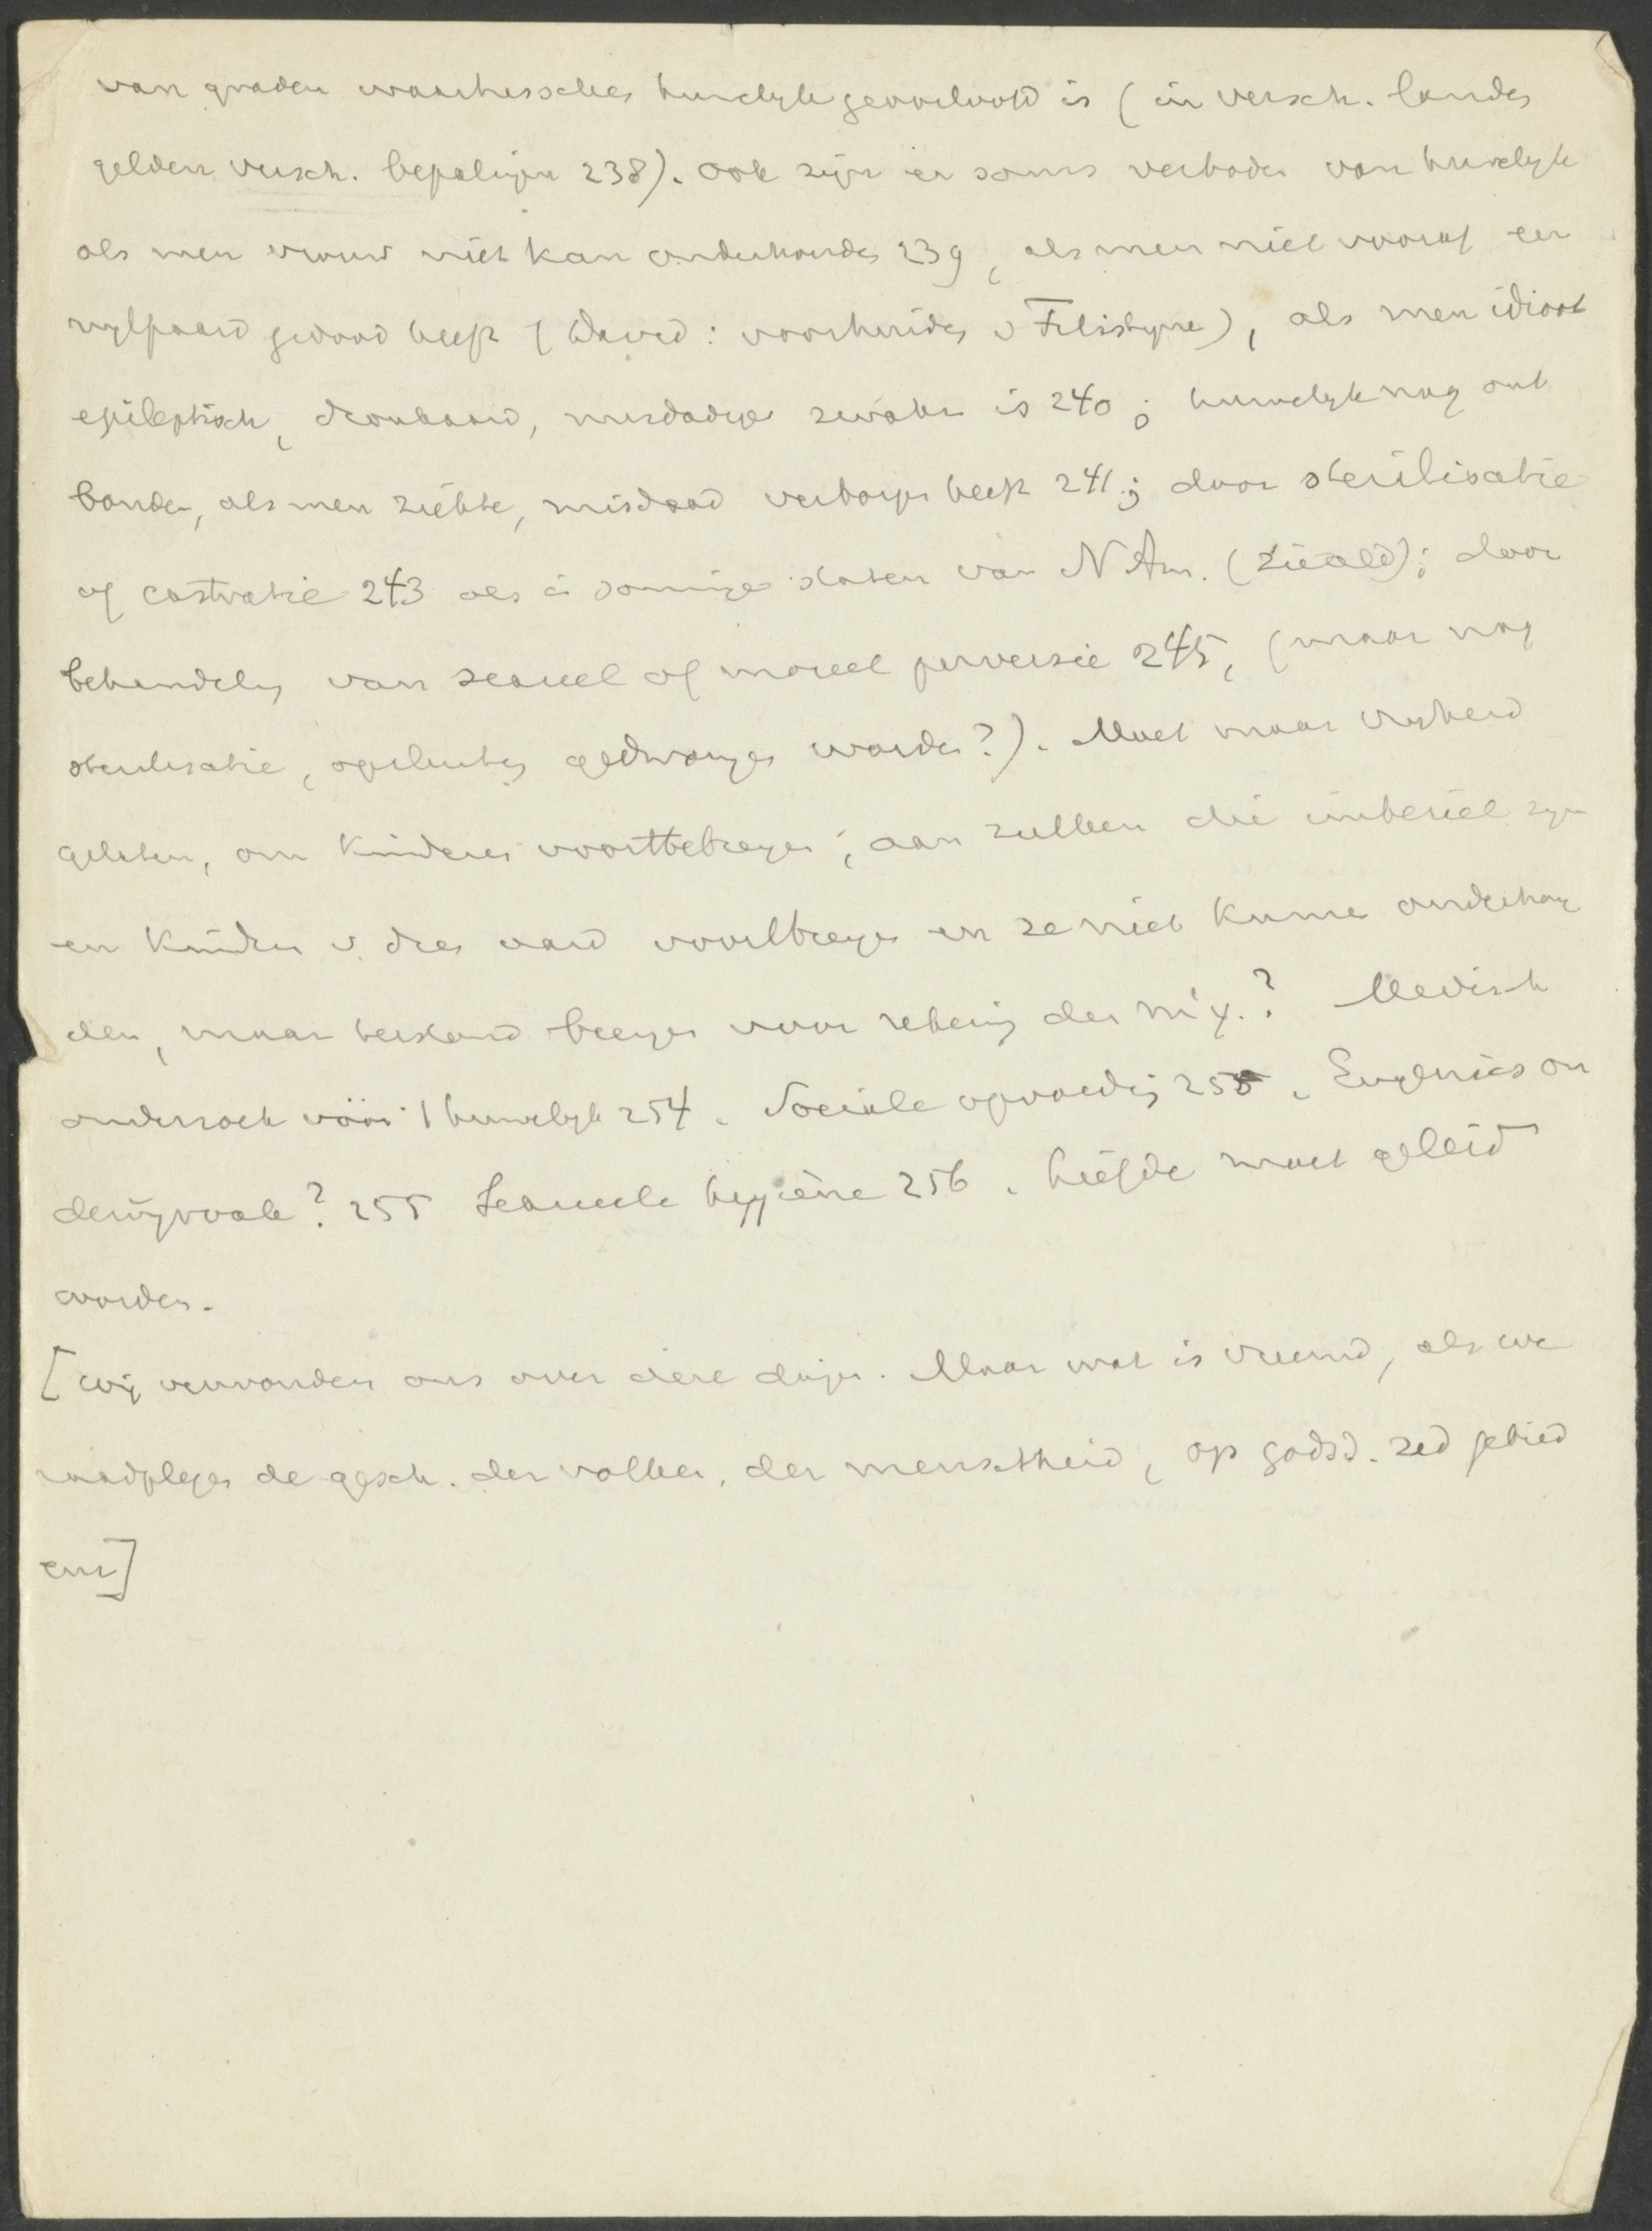 van graden waartusschen huwelijk geoorloofd is (in versch. landen
gelden versch. bepalingen 238). Ook zijn er soms verboden van huwelijk
als men vrouw niet kan onderhouden 239, als men niet vooraf een
nijlpaard gedood heeft (David: voorhuiden v Filistijne), als men idioot
epileptisch, dronkaard, misdadiger zwakz is 240; huwelijk mag ont
bonden, als men ziekte, misdaad verborgen heeft 241; door sterilisatie
of castratie 243 als i sommige staten van N Am. (zie ald); door
behandeling van sexueel of moreel perversie 245, (maar mag
sterilisatie, opsluiting gedwongen worden?). Moet maar vrijheid
gelaten, om kinderen voorttebrengen; aan zulken die imbeciel zijn
en kinders v. dien aard voortbrengen en ze niet kunnen onderhou
den, maar tenstand brengen voor rekening der mij.? Medisch
onderzoek vóór 't huwelijk 254. Sociale opvoeding 255. Eugenics on
derwijsvak? 255 Sexueele hygiëne 256. Liefde moet geleid
worden.
[Wij verwonderen ons over deze dingen. Maar wat is vreemd, als we
raadplegen de gesch. der volken, der menschheid, op godsd. zed gebied
enz]